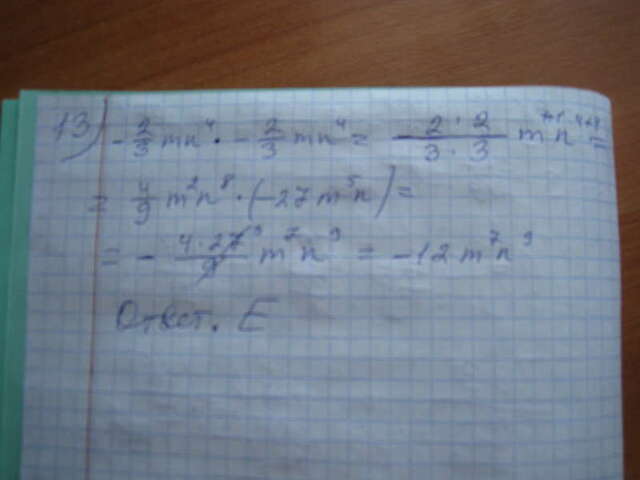 13) - 2/3 mn⁴ · - 2/3 mn⁴ = 2 · 2 / 3 · 3 m¹⁺¹n⁴⁺⁴ =
= 4/9 m²n⁸ · (-27 m⁵n) =
= - 4 · 27³ / 9 m⁷n⁹ = -12 m⁷n⁹
Ответ. E